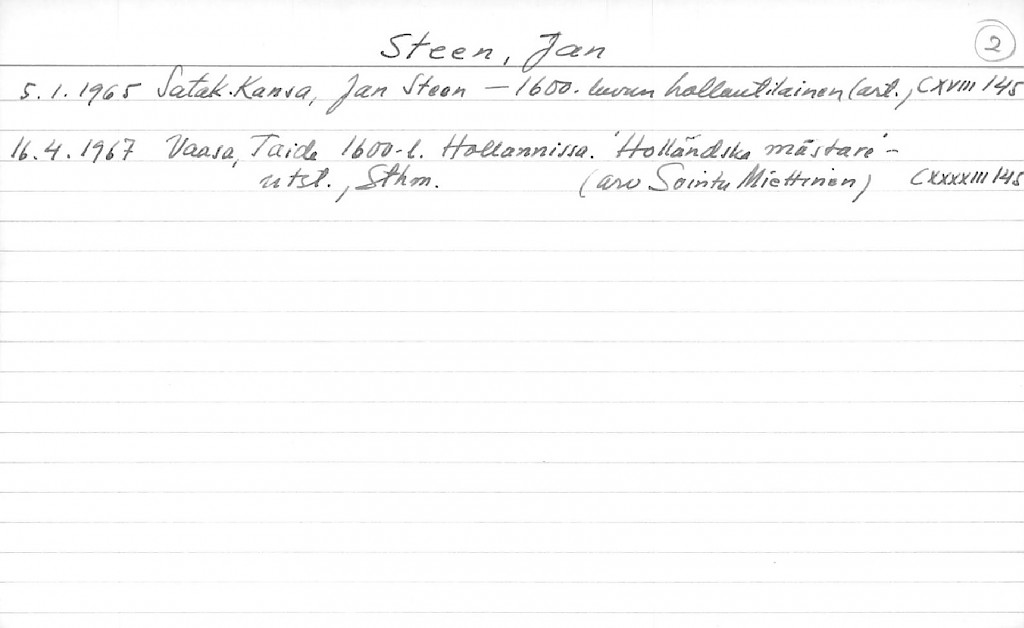 Steen, Jan
2
5.1.1965 Satak.Kansa, Jan Steen – 1600-luvun hollantilainen (art.) CXVIII 145
16.4.1967 Vaasa, Taide 1600-l. Hollannissa. 'Holländska mästare'-
utst., Sthm. (arv Sointu Miettinen) CXXXXIII 145